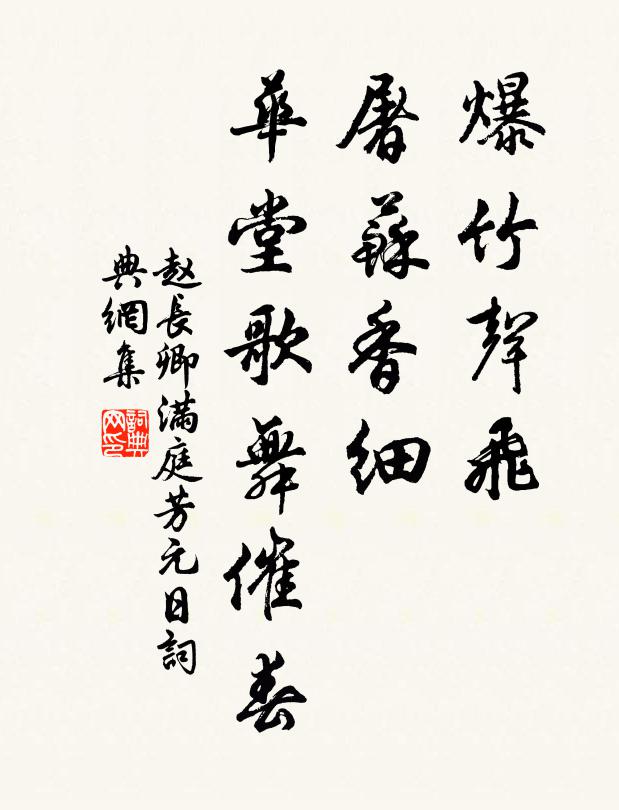 爆竹聲飛
屠蘇香細
華堂歌舞催春
赵長卿滿庭芳元日詞
典網集
詞典网印